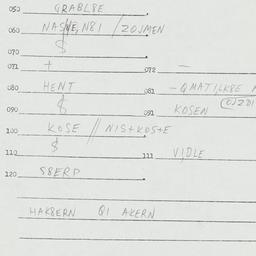 050 GRABL8E
060 NASNE, N81 / ZOJMEN
070 $
071 + 072 —
080 HENT 081 - QMATI,LK8E
090 $ 091 KOSEN
100 KOSE // NIS+KOS+E
110 $ 111 VIDLE
120 S8ERP
HAK8ERN 81 AKERN